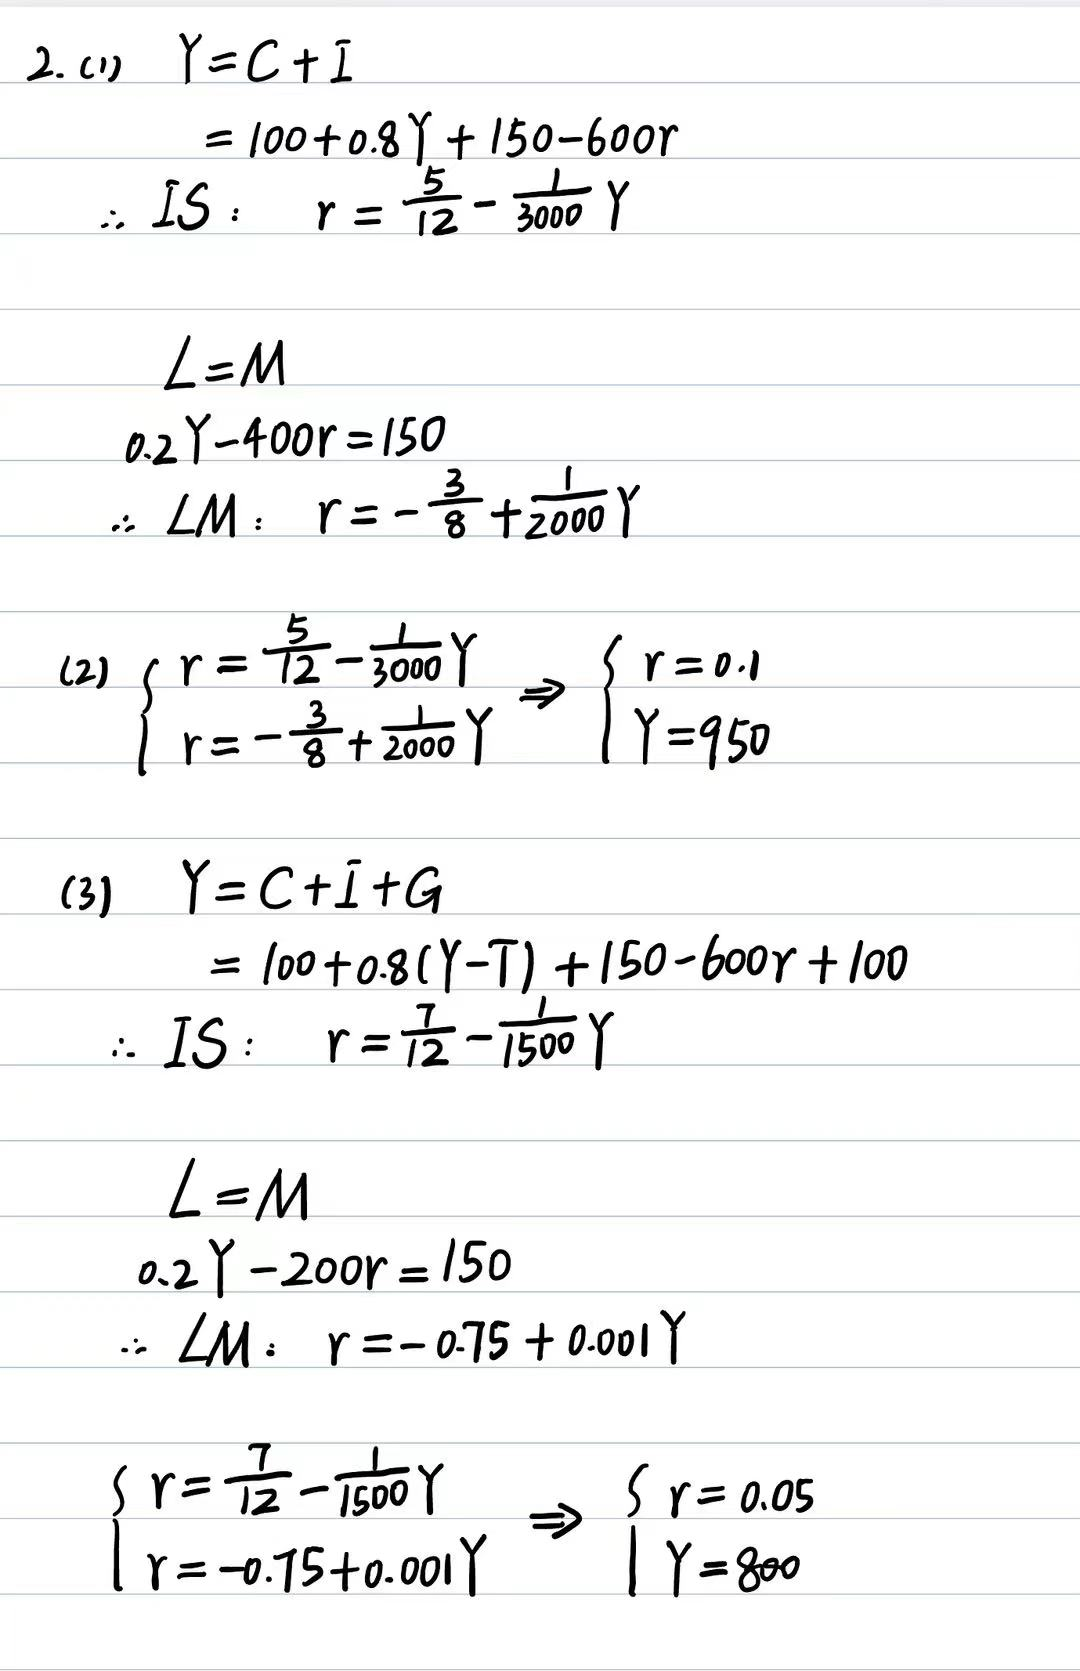 2.(1) Y=C+I
=100+0.8Y+150-600r
∴ IS: r=5/12-1/3000Y
L=M
0.2Y-400r=150
∴ LM: r=-3/8+1/2000Y
(2) { r=5/12-1/3000Y ⇒ { r=0.1
r=-3/8+1/2000Y Y=950
(3) Y=C+I+G
=100+0.8(Y-T)+150-600r+100
∴ IS: r=7/12-1/1500Y
L=M
0.2Y-200r=150
∴ LM: r=-0.75+0.001Y
{ r=7/12-1/1500Y ⇒ { r=0.05
r=-0.75+0.001Y Y=800